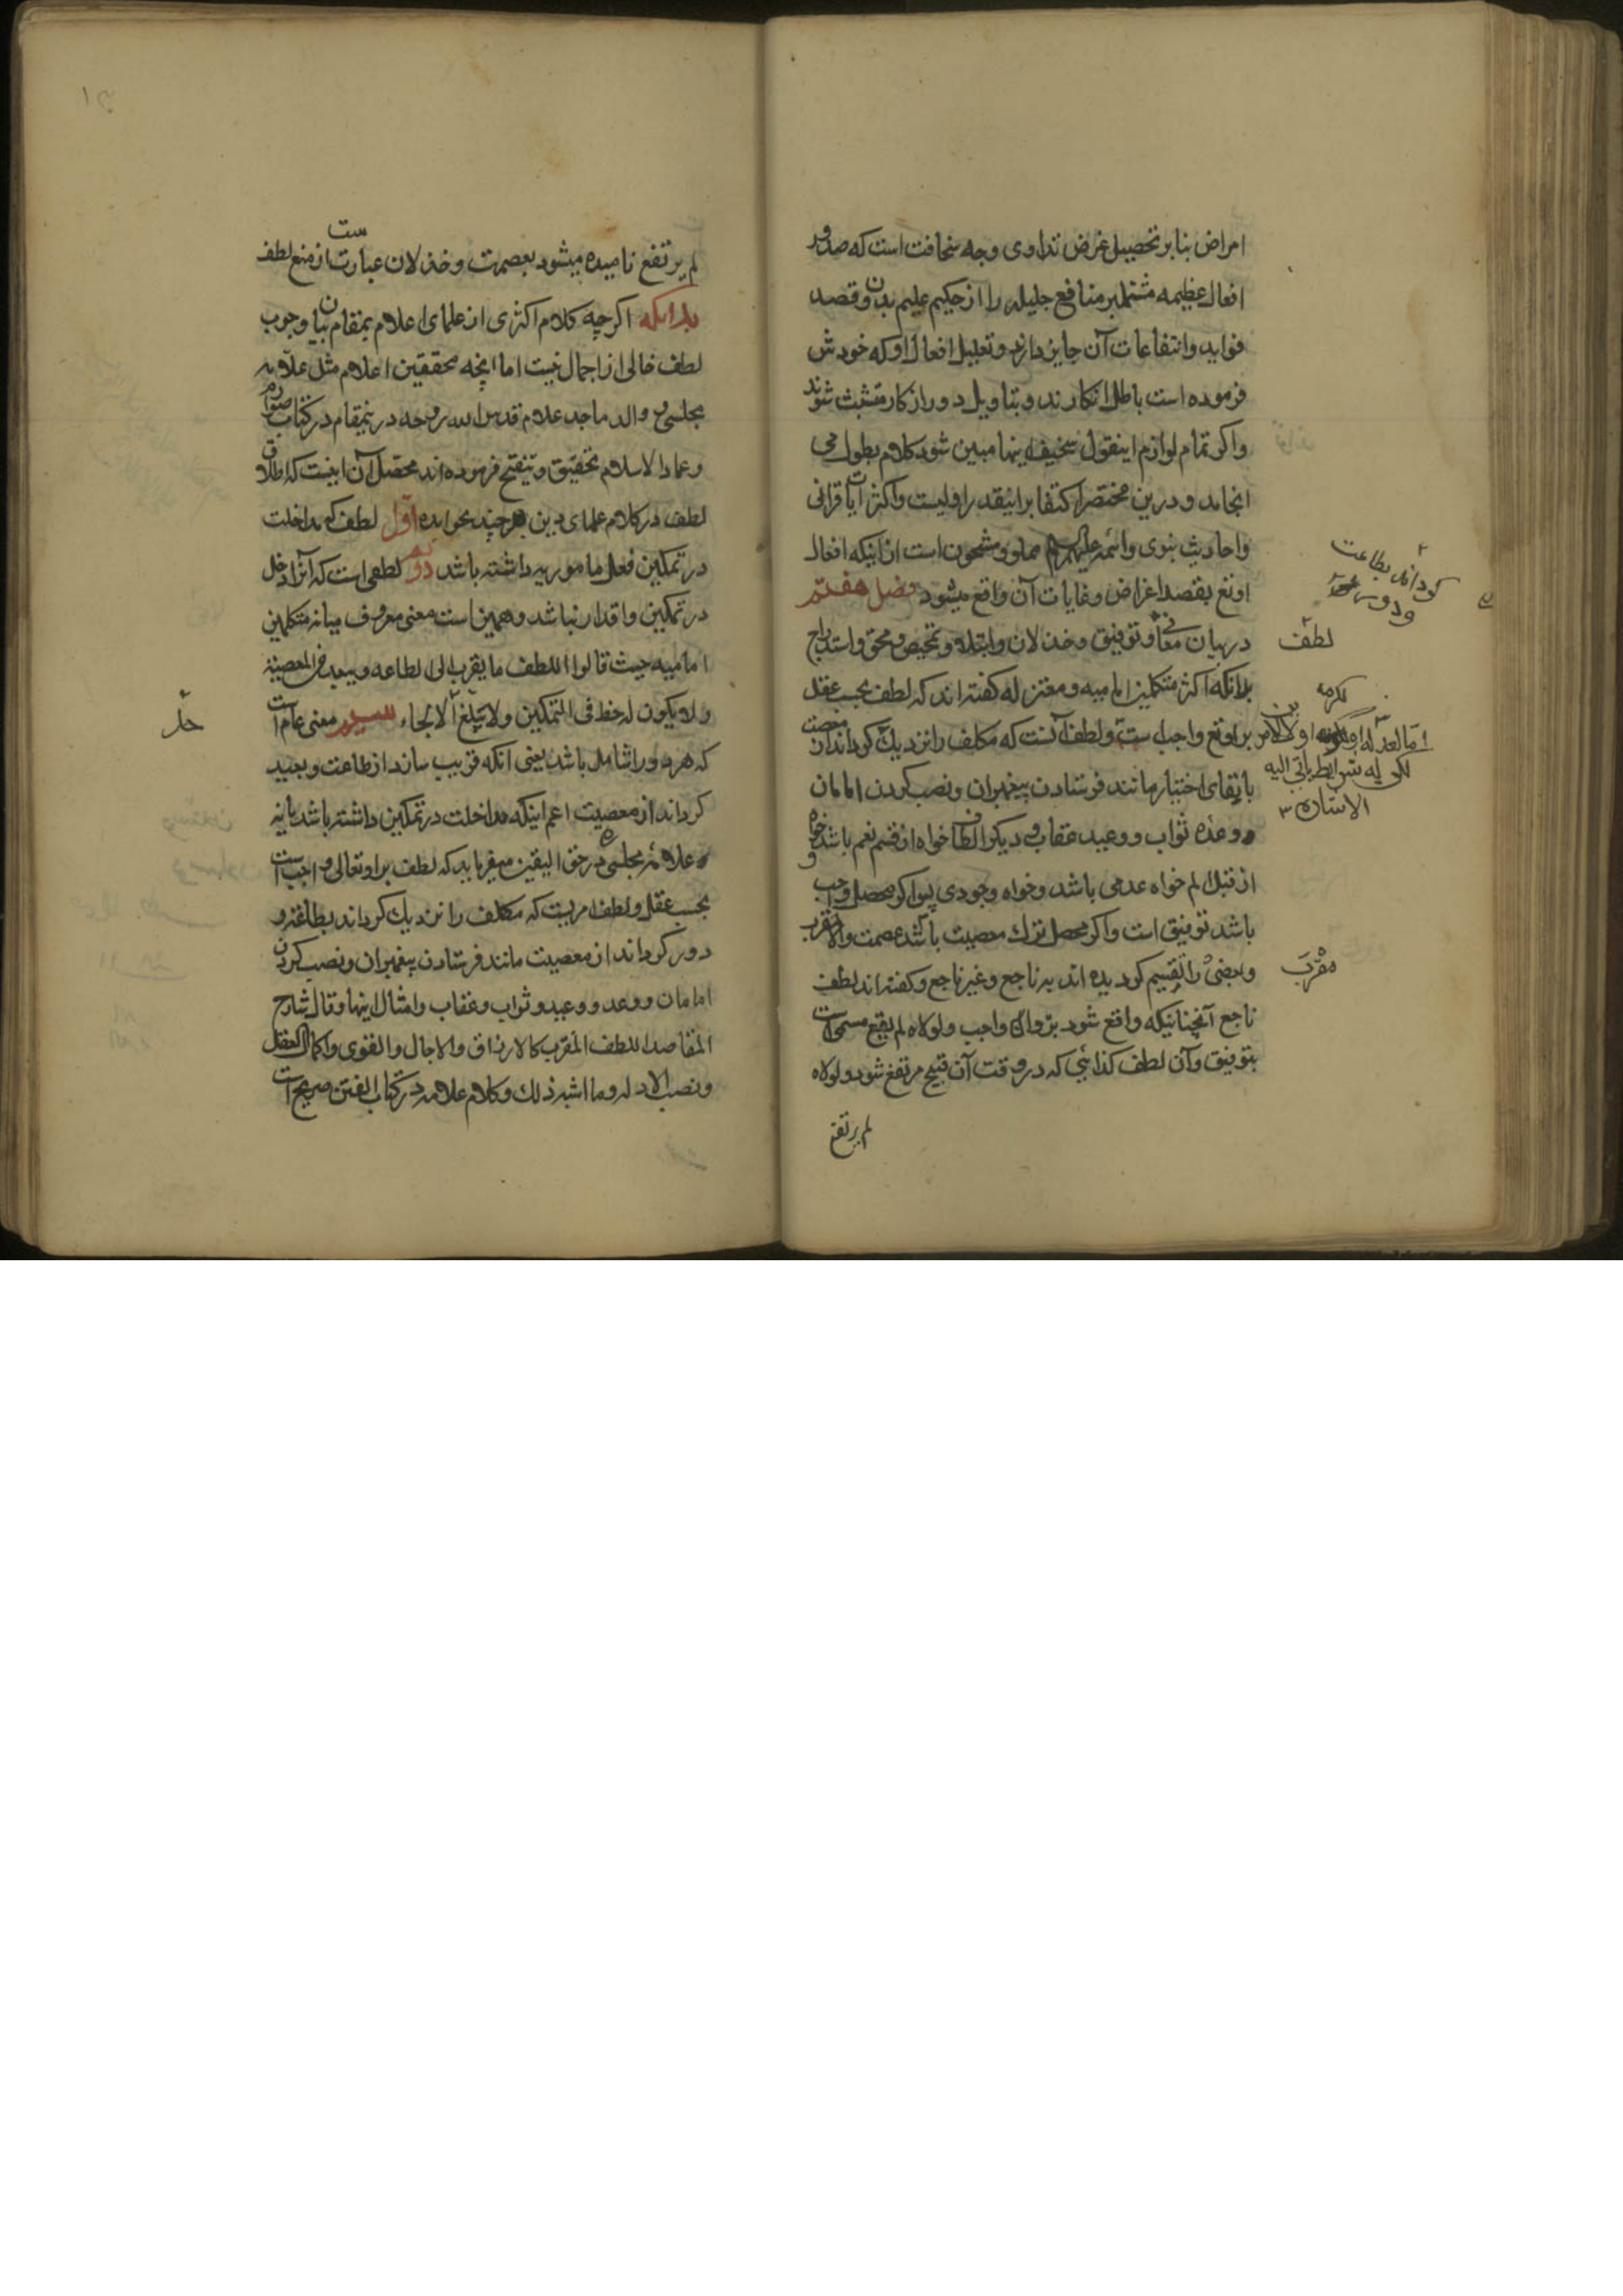 امراض بنابر تحصیل غرض تداوی وجه سخافت است که صدور
افعال عظیمه مشتمل بر منافع جلیله را از حکیم علیم بدون قصد
فواید و انتفاعات آن جایز دارند و تعلیل افعال او که خودش
فرموده است باطل انکارند و بتاویل دور از کار متشبث شوند
و اکر تمام لوازم اینقول سخیف اینها مبین شود کلام بطول می
انجامد و درین مختصر اکتفا برانیقدر اولیست و اکثر آیات قرانی
و احادیث نبوی و ائمه علیهم السلام مملو و مشحون است از اینکه افعال
اوتع بقصد اغراض و غایات آن واقع میشود فصل هفتم
در بیان معانی و توفیق و خذلان و ابتلا و تمحیص و محق و استدراج
لطف
بدانکه اکثر متکلمین امامیه و معتزله کفته اند که لطف بحسب عقل
بر اوتع واجب ست و لطف آنست که مکلف را نزدیک کرداند از معصیت
کرداند بطاعت
و دور
با بقای اختیار مانند فرستادن پیغمبران و نصب کردن امامان
و وعده ثواب و وعید عقاب و دیکر الطاف خواه از قسم نعم باشد خواه
از قبیل الم خواه عدمی باشد و خواه وجودی پس اکر محصل واجب
باشد توفیق است و اکر محصل ترک معصیت باشد عصمت و الا مقرب
مقرب
و بعضی را تقسیم کردیده اند به ناجع و غیر ناجع و کفته اند لطف
ناجع آنچنانیکه واقع شود بر واجب و لولاه لم یقع مسمی است
بتوفیق و آن لطف کذائی که در وقت آن قبیح مرتفع شود و لولاه
لم یرتفع
لم یرتفع نامیده میشود بعصمت و خذلان عبارت ست از منع لطف
بدانکه اکرچه کلام اکثری از علمای اعلام بمقام بیان وجوب
لطف خالی از اجمال نیست اما انچه محققین اعلام مثل علامه
مجلسی و والد ماجد علام قدس الله روحه درینمقام در کتاب صوارم
و عماد الاسلام تحقیق و تنقیح فرموده اند محصل آن اینست که اطلاق
لطف در کلام علمای دین بر چند نحو آمده اول لطف که مداخلت
در تمکین فعل مامور به داشته باشد دوم لطفی است که آنرا دخل
در تمکین و اقدار نباشد و همین است معنی معروف میانه متکلمین
امامیه حیث قالوا اللطف ما یقرب الی الطاعه و یبعد عن المعصیة
و لا یکون له حظ فی التمکین و لا یبلغ الالجاء سیوم معنی عام است
که هر دو را شامل باشد یعنی انکه قریب سازد از طاعت و بعید
کرداند از معصیت اعم اینکه مداخلت در تمکین داشته باشد یا نه
و علامه مجلسی در حق الیقین میفرماید که لطف بر او تعالی واجب است
بحسب عقل و لطف امریست که مکلف را نزدیک کرداند بطاعت و
دور کرداند از معصیت مانند فرستادن پیغمبران و نصب کردن
امامان و وعد و وعید و ثواب و عقاب و امثال اینها و قال شارح
المقاصد اللطف المقرب کالارزاق و الاجال و القوی و اکمال العقل
و نصب الادله و ما اشبه ذلک و کلام علامه در کتاب الفتن صریح است